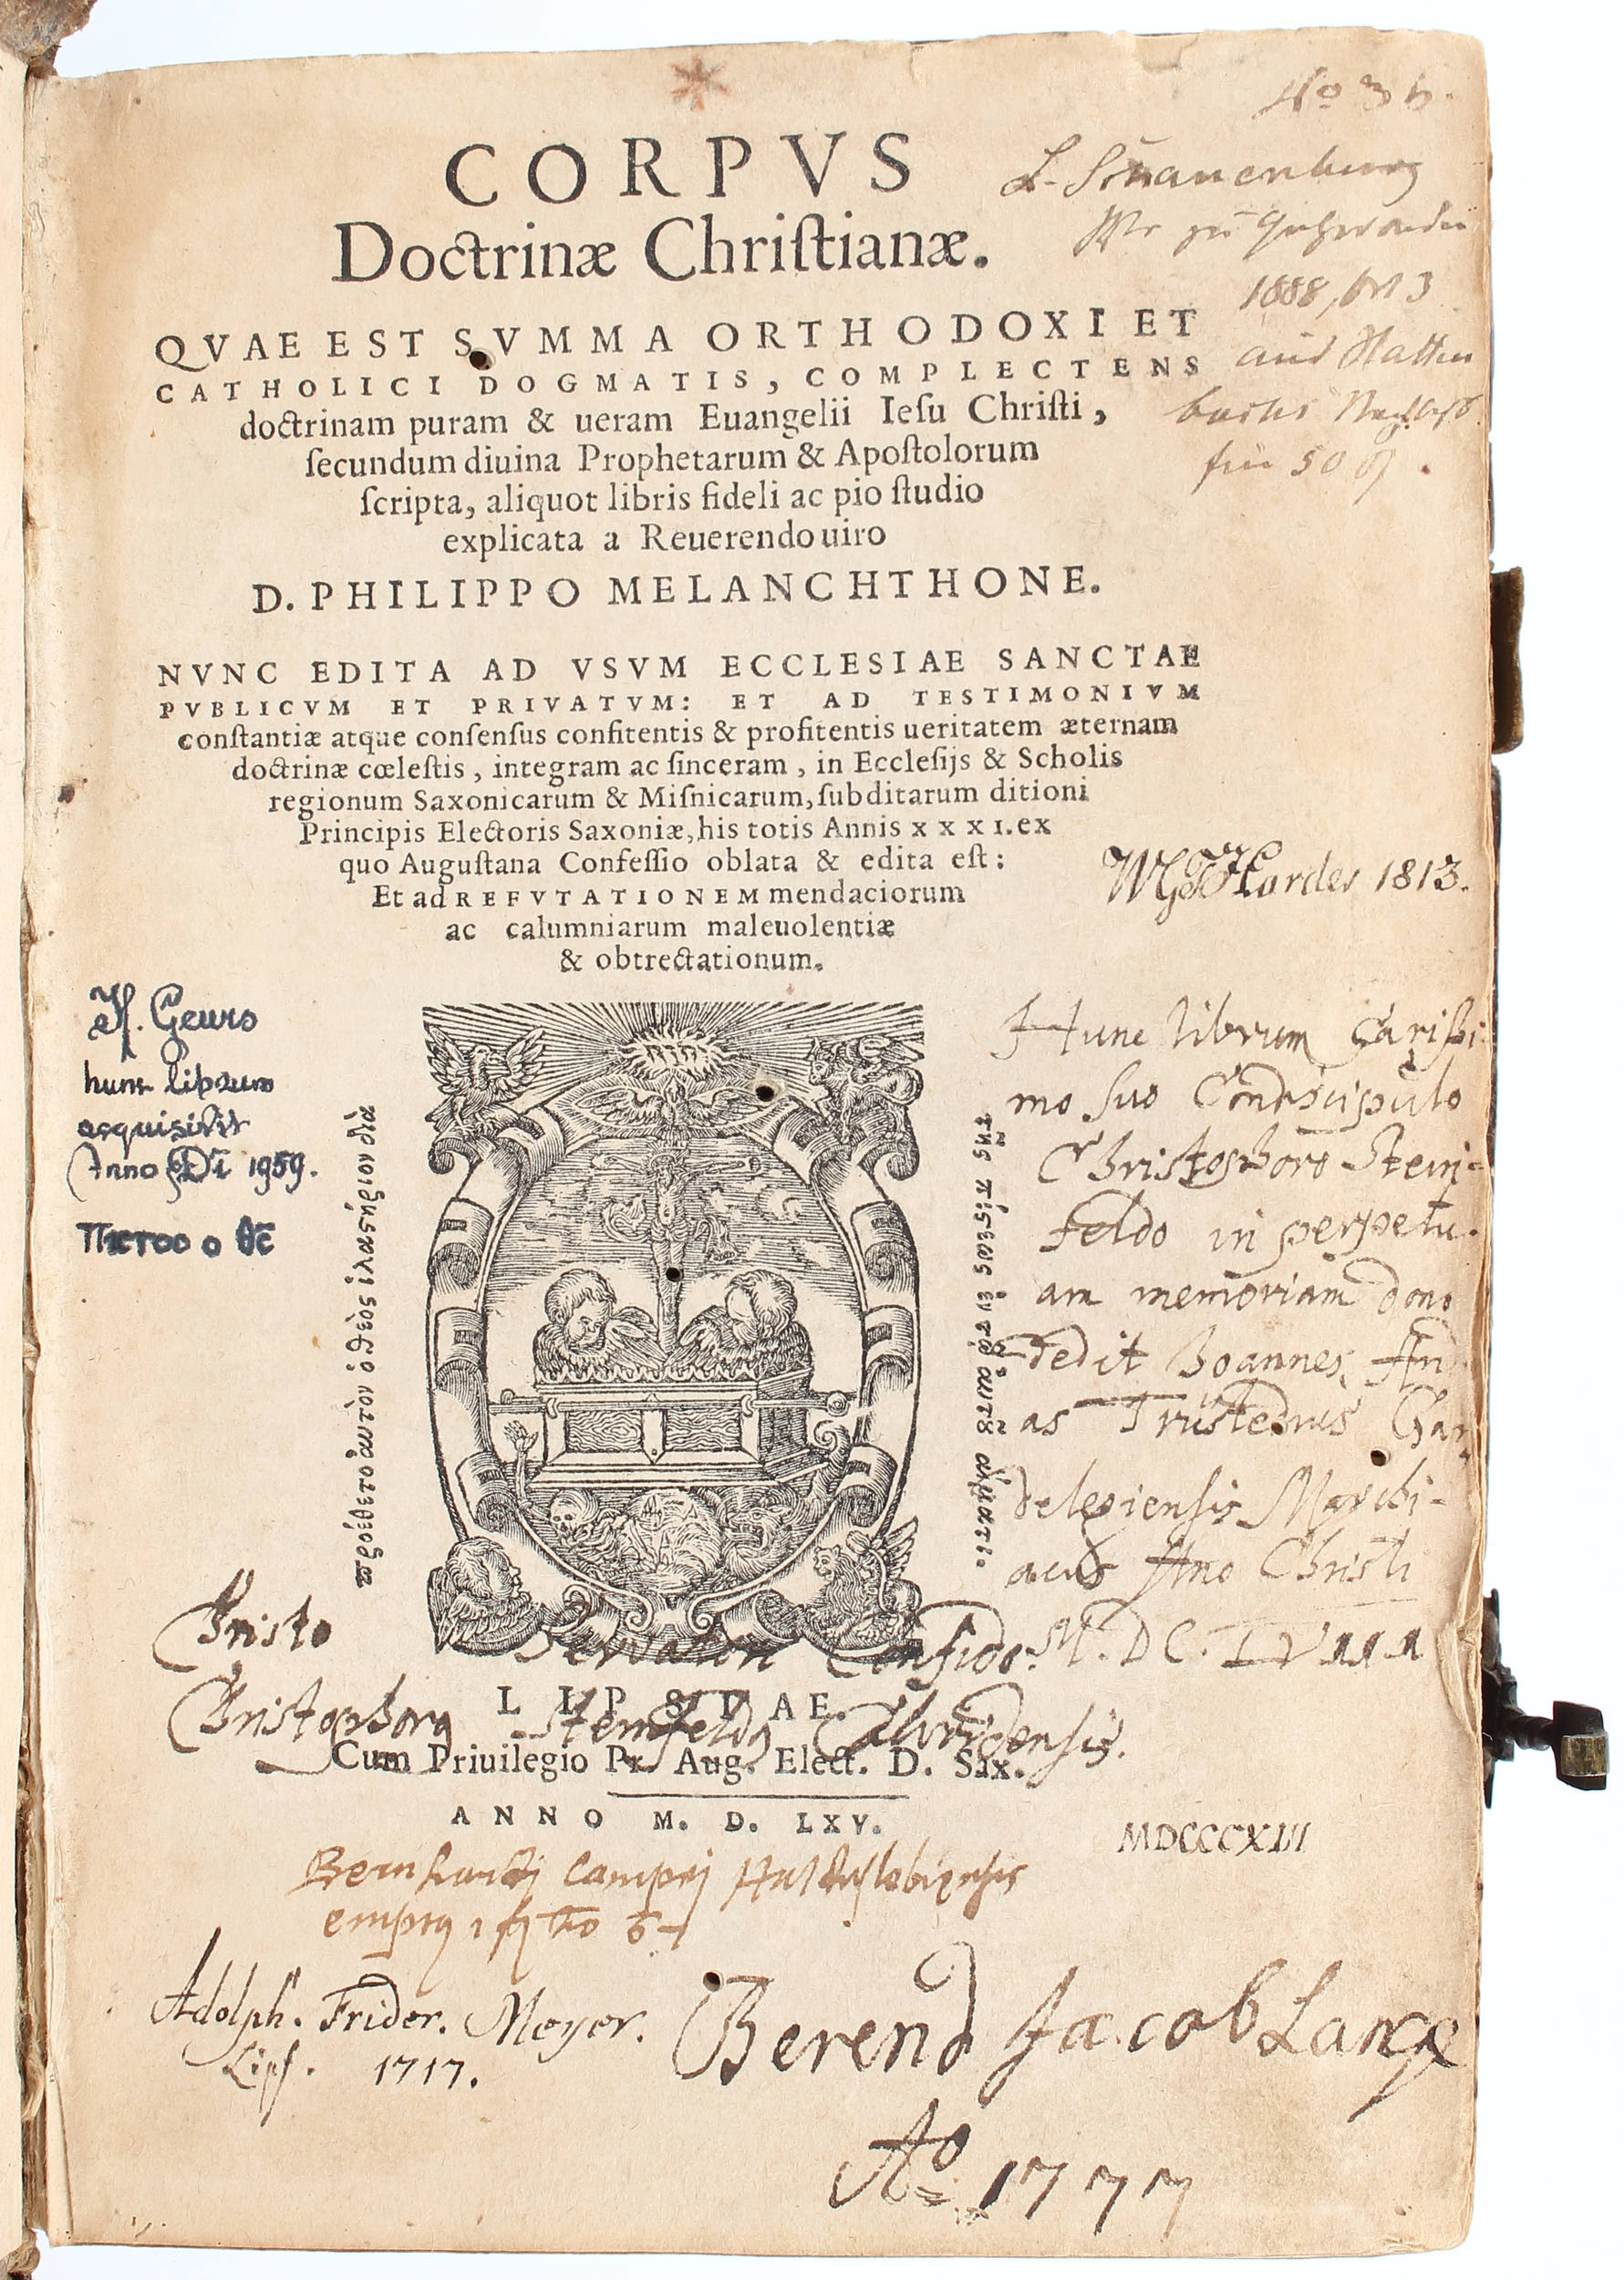 No 3
L. Schauenburg
1888,
aus Hatten
für 50 ₰.
CORPVS
Doctrinæ Chriſtianæ.
QVAE EST SVMMA ORTHODOXI ET
CATHOLICI DOGMATIS, COMPLECTENS
doctrinam puram & ueram Euangelii Ieſu Chriſti,
ſecundum diuina Prophetarum & Apoſtolorum
ſcripta, aliquot libris fideli ac pio ſtudio
explicata a Reuerendo uiro
D. PHILIPPO MELANCHTHONE.
NVNC EDITA AD VSVM ECCLESIAE SANCTAE
PVBLICVM ET PRIVATVM: ET AD TESTIMONIVM
conſtantiæ atque conſenſus confitentis & profitentis ueritatem æternam
doctrinæ cœleſtis, integram ac ſinceram, in Eccleſijs & Scholis
regionum Saxonicarum & Miſnicarum, ſubditarum ditioni
Principis Electoris Saxoniæ, his totis Annis XXXI. ex
quo Auguſtana Confeſſio oblata & edita eſt:
Et ad REFVTATIONEM mendaciorum
ac calumniarum maleuolentiæ
& obtrectationum.
Harder 1813.
H. Geurs
hunc librum
acquisivit
Anno Di 1959.
προέθετο αὐτὸν ὁ θεὸς ἱλαστήριον διὰ
τῆς πίστεως ἐν τῷ αὐτοῦ αἵματι.
Hunc librum Carißi-
mo suo Condiscipulo
Christophoro Stein-
feldo in perpetu-
am memoriam dono
dedit Joannes And
as Trüstedius Gar
delegiensis Marchi-
acus Ano Christi
M.DC.
Christo Servatori Confido.
LIPSIAE.
Christophorus Steinfeldus
Cum Priuilegio Pr. Aug. Elect. D. Sax.
ANNO M. D. LXV.
MDCCCXIII
Bernhardi Campej Haldeslebiensis
Adolph. Frider. Meyer.
Lips. 1717.
Berend Jacob Lange
Ao 1777